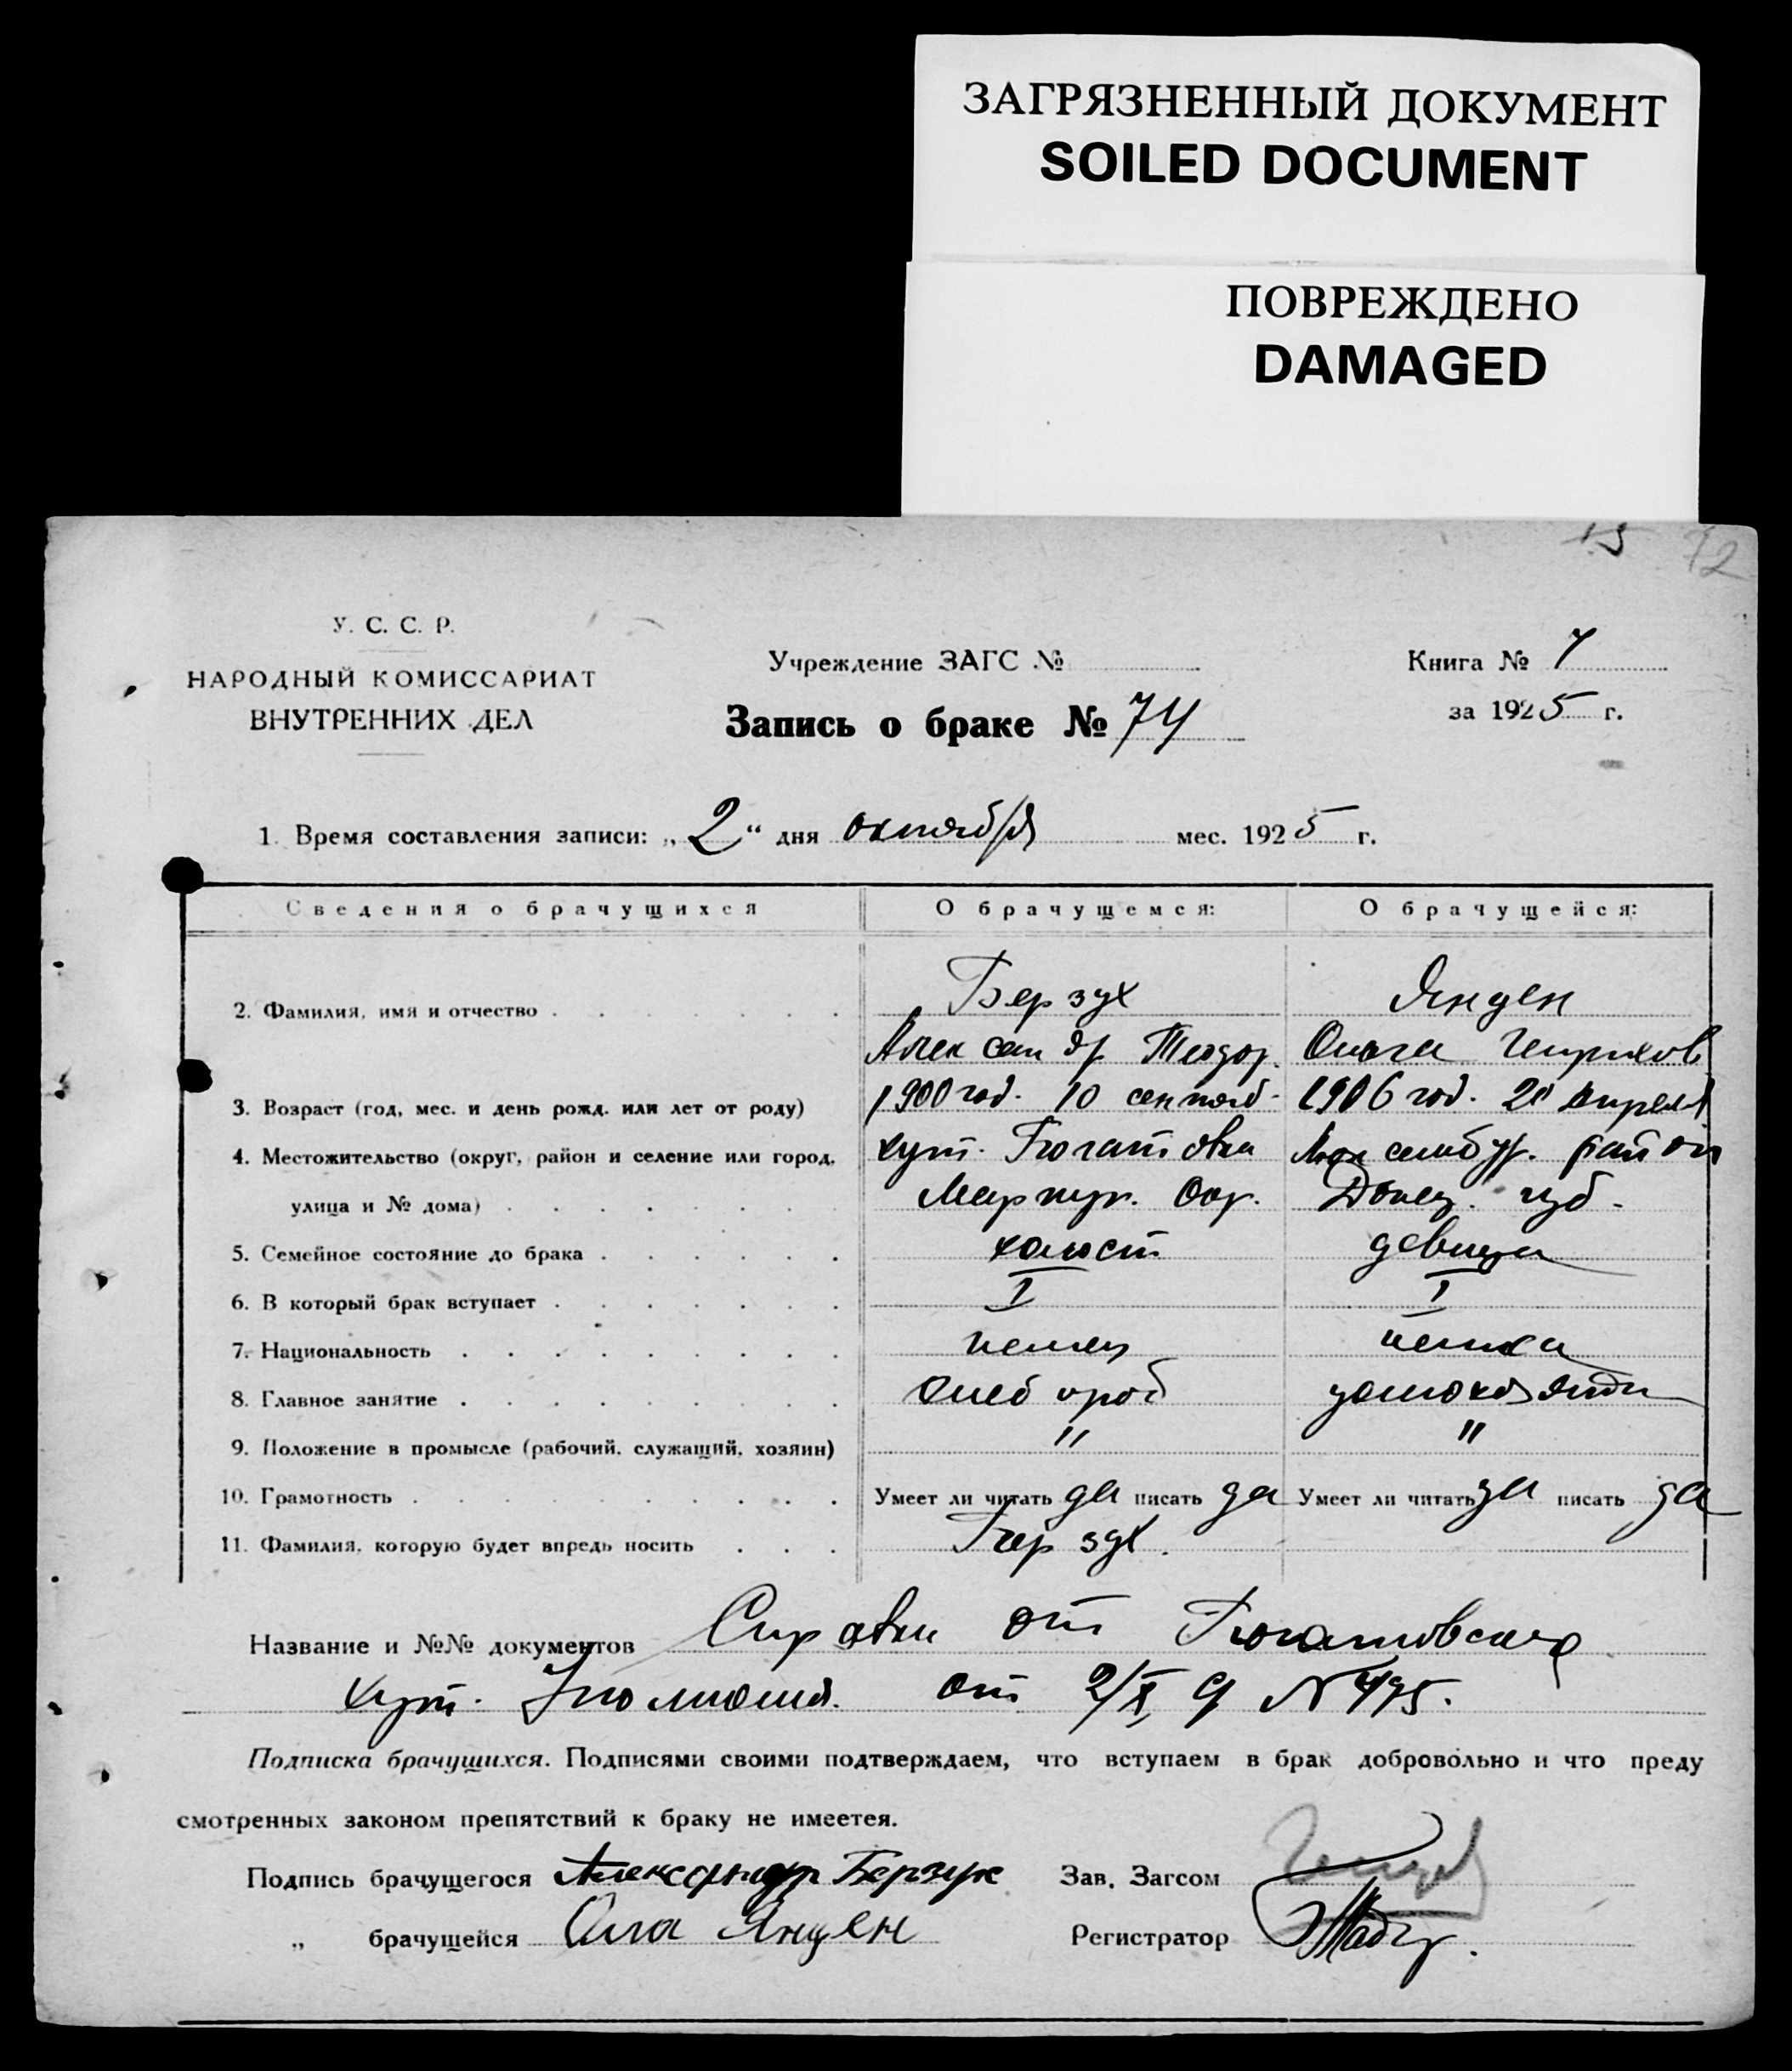 ЗАГРЯЗНЕННЫЙ ДОКУМЕНТ
SOILED DOCUMENT
ПОВРЕЖДЕНО
DAMAGED
15 72
У. С. С. Р.
НАРОДНЫЙ КОМИССАРИАТ
ВНУТРЕННИХ ДЕЛ
Учреждение ЗАГС №
Запись о браке № 74
Книга № 7
за 1925 г.
1. Время составления записи: „2“ дня октября мес. 1925 г.
Сведения о брачущихся О брачущемся: О брачущейся:
Берзух Янцен
2. Фамилия, имя и отчество
Александр Теодор. Ольга Генрихов
3. Возраст (год, мес. и день рожд. или лет от роду) 1900 год. 10 сентяб- 1906 год. апреля
4. Местожительство (округ, район и селение или город, хут. Люксембур. район
улица и № дома) Мариуп. Окр. Донец. губ.
5. Семейное состояние до брака холост девица
6. В который брак вступает I I
7. Национальность немец немка
8. Главное занятие хлебороб домохозяйка
9. Положение в промысле (рабочий, служащий, хозяин) " "
10. Грамотность Умеет ли читать да писать да Умеет ли читать да писать да
11. Фамилия, которую будет впредь носить Берзух.
Название и №№ документов Справки от
хут. от 2/X, с/г N 495.
Подписка брачущихся. Подписями своими подтверждаем, что вступаем в брак добровольно и что преду
смотренных законом препятствий к браку не имеется.
Подпись брачущегося Александр Берзух Зав. Загсом
„ брачущейся Олга Янцен Регистратор